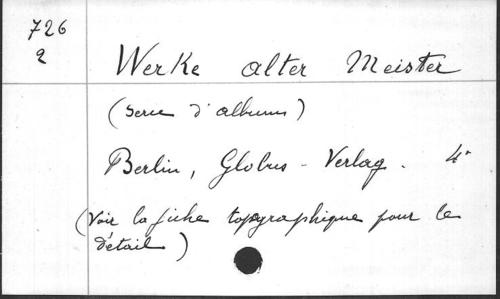 726
2
Werke alter Meister
(serie d'albums)
Berlin, Globus-Verlag. 4°
(Voir la fiche topographique pour le
détail)